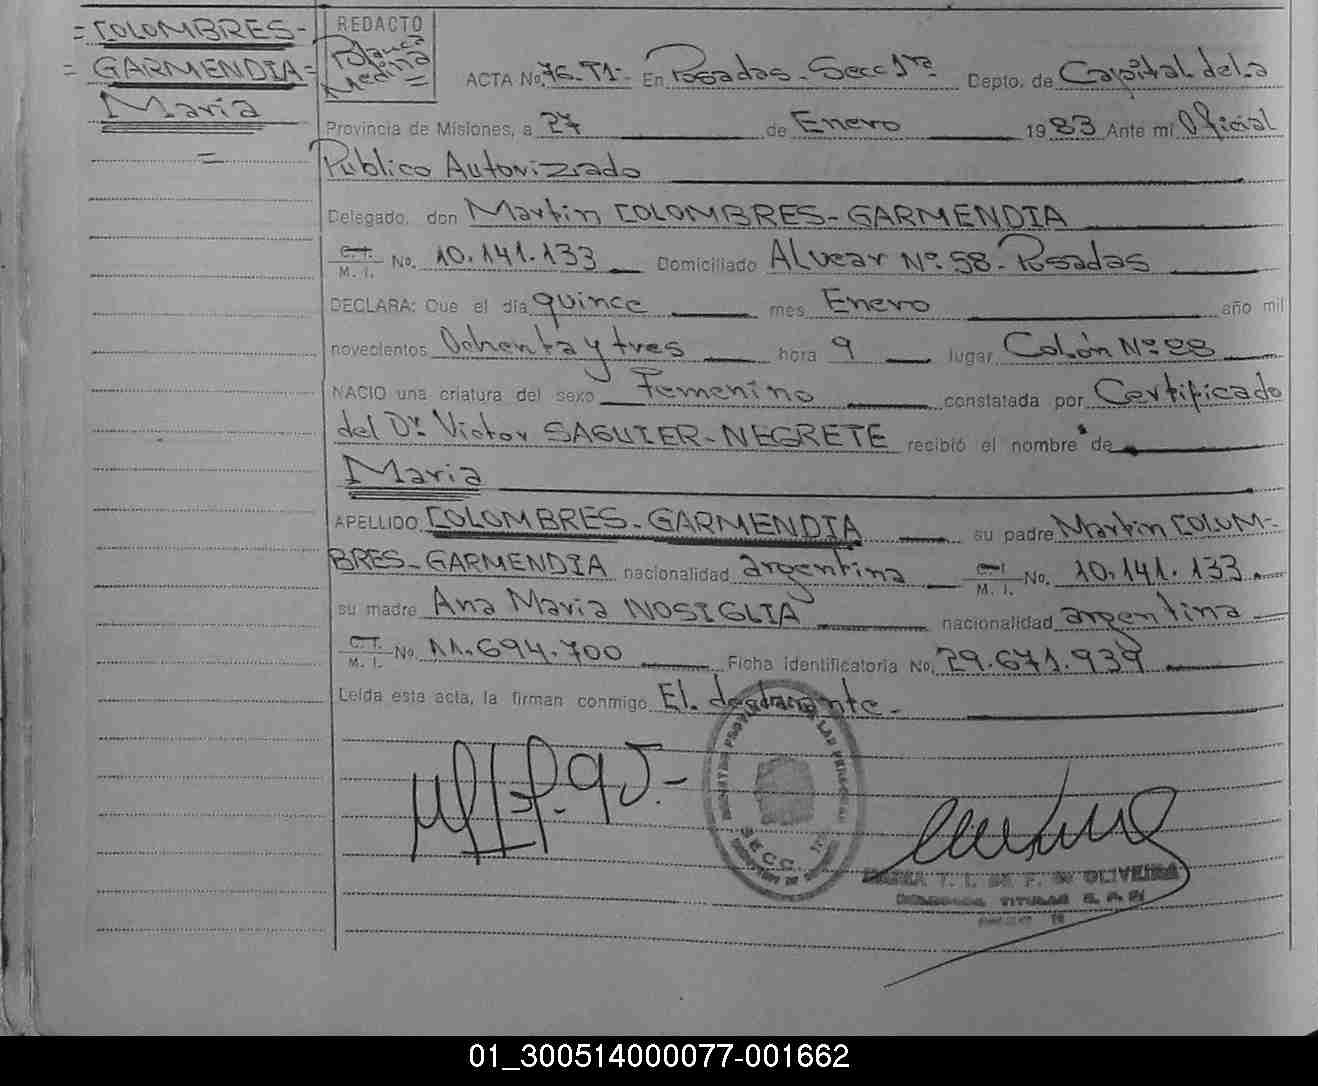 = COLOMBRES-
= GARMENDIA =
Maria
=
REDACTO
Blanca
Medina
=
ACTA No. 76-T1- En Posadas-Secc 1ra Depto. de Capital de la
Provincia de Misiones, a 27 de Enero 1983 Ante mi Oficial
Publico Autorizado
Delegado, don Martin COLOMBRES-GARMENDIA
C.I. M. I. No. 10.141.133 Domiciliado ALvear Nº 58- Posadas
DECLARA: Que el día quince mes Enero año mil
novecientos Ochenta y tres hora 9 lugar Colón Nº 88
NACIO una criatura del sexo Femenino constatada por Certificado
del Dr. Victor SAGUIER-NEGRETE recibió el nombre de
Maria
APELLIDO COLOMBRES-GARMENDIA su padre Martin COLOM-
BRES-GARMENDIA nacionalidad argentina C.I. M. I. No. 10.141.133
su madre Ana Maria NOSIGLIA nacionalidad argentina
C.I. M. I. No. 11.694.700 Ficha identificatoria No. 29.671.939
Leída esta acta, la firman conmigo El declarante.-
LAS PERSONAS
SECC.
MARIA T. L. DE F. DE OLIVEIRA
TITULAR
01_300514000077-001662